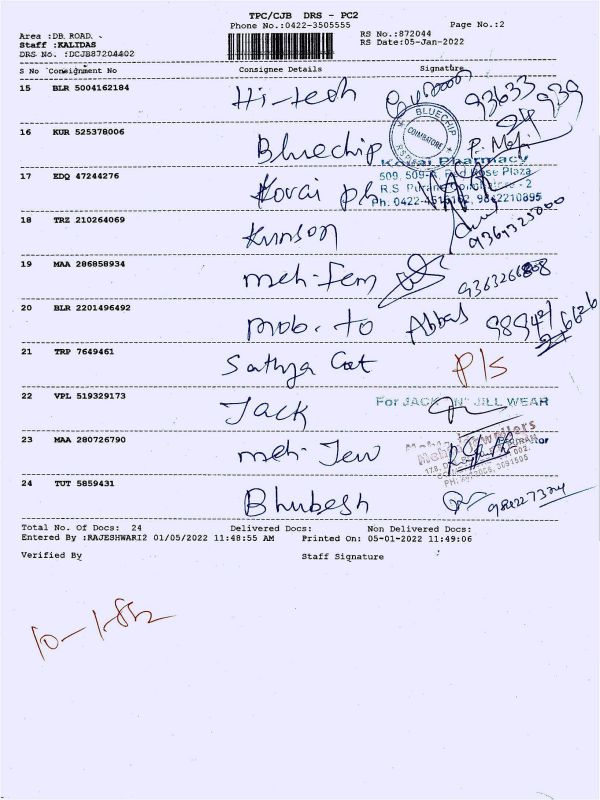 TPC/CJB DRS - PC2
Phone No.:0422-3505555 Page No.:2
Area :DB. ROAD. RS No.:872044
Staff :KALIDAS RS Date:05-Jan-2022
DRS No. :DCJB87204402
S No Consignment No Consignee Details Signature
15 BLR 5004162184 Hi-tech 93633 939
16 KUR 525378006 Bluechip BLUECHIP COIMBATORE
Kovai Pharmacy
17 EDQ 47244276 Kovai ph 509, 509-A, Red Rose Plaza
R.S. Puram Coimbatore - 2
Ph: 0422- 9842210895
18 TRZ 210264069 Kunson
19 MAA 286858934 meh-fem
20 BLR 2201496492 mob. to Abbas
21 TRP 7649461 Sathya P/s
22 VPL 519329173 Jack For JACK "N" JILL WEAR
23 MAA 280726790 meh-Jew Mehta Jewellers
24 TUT 5859431 Bhubesh
Total No. Of Docs: 24 Delivered Docs: Non Delivered Docs:
Entered By :RAJESHWARI2 01/05/2022 11:48:55 AM Printed On: 05-01-2022 11:49:06
Verified By Staff Signature